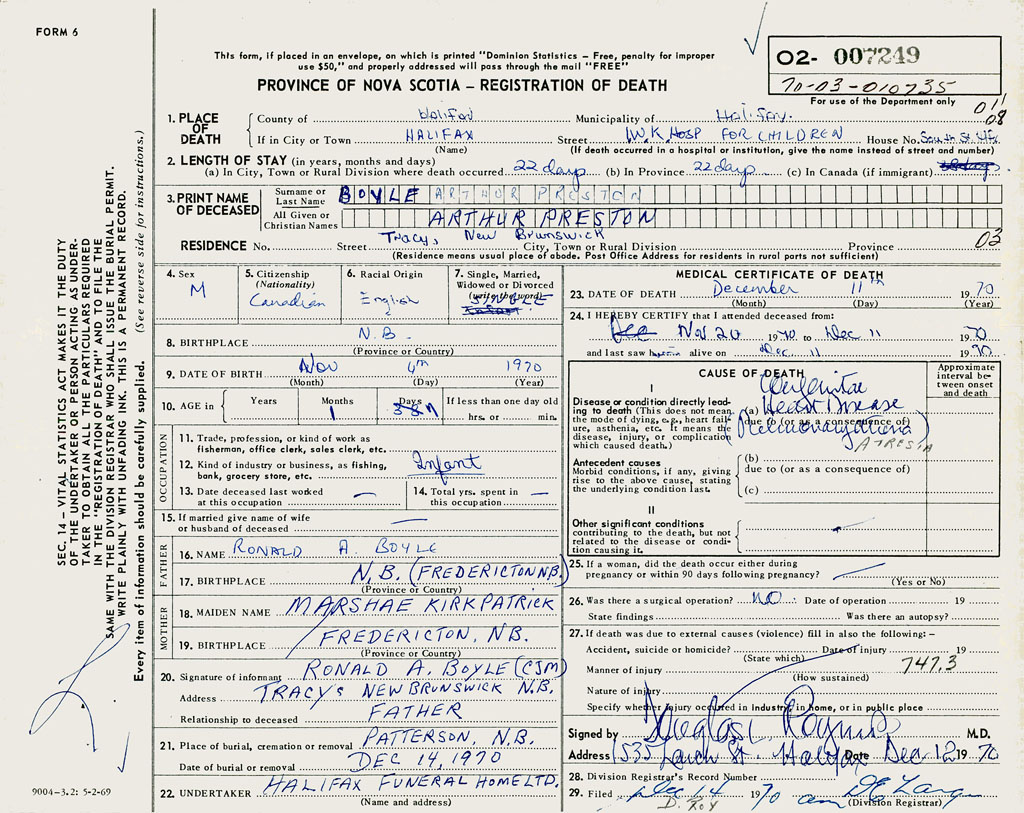 FORM 6
This form, if placed in an envelope, on which is printed "Dominion Statistics – Free, penalty for improper
use $50," and properly addressed will pass through the mail "FREE"
PROVINCE OF NOVA SCOTIA – REGISTRATION OF DEATH
02- 007249
70-03-010735
For use of the Department only
011
08
1. PLACE OF DEATH
County of Halifax Municipality of Halifax
If in City or Town HALIFAX Street I.W.K. HOSP FOR CHILDREN House No. South St. Hfx
(Name) (If death occurred in a hospital or institution, give the name instead of street and number)
2. LENGTH OF STAY (in years, months and days)
(a) In City, Town or Rural Division where death occurred 22 days (b) In Province 22 days (c) In Canada (if immigrant)
3. PRINT NAME OF DECEASED
Surname or Last Name BOYLE ARTHUR PRESTON
All Given or Christian Names ARTHUR PRESTON
RESIDENCE No. Street Tracy, New Brunswick City, Town or Rural Division Province 03
(Residence means usual place of abode. Post Office Address for residents in rural parts not sufficient)
4. Sex M
5. Citizenship (Nationality) Canadian
6. Racial Origin English
7. Single, Married, Widowed or Divorced (write the word) SINGLE
8. BIRTHPLACE N.B.
(Province or Country)
9. DATE OF BIRTH Nov 4th 1970
(Month) (Day) (Year)
10. AGE in Years Months 1 Days If less than one day old
hrs. or min.
OCCUPATION
11. Trade, profession, or kind of work as
fisherman, office clerk, sales clerk, etc.
12. Kind of industry or business, as fishing,
bank, grocery store, etc. Infant
13. Date deceased last worked
at this occupation —
14. Total yrs. spent in
this occupation —
15. If married give name of wife
or husband of deceased —
FATHER
16. NAME RONALD A. BOYLE
17. BIRTHPLACE N.B. (FREDERICTON N.B.)
(Province or Country)
MOTHER
18. MAIDEN NAME MARSHAE KIRKPATRICK
19. BIRTHPLACE FREDERICTON, N.B.
(Province or Country)
20. Signature of informant RONALD A. BOYLE (CJM)
Address TRACY'S NEW BRUNSWICK N.B.
Relationship to deceased FATHER
21. Place of burial, cremation or removal PATTERSON, N.B.
Date of burial or removal DEC 14, 1970
22. UNDERTAKER HALIFAX FUNERAL HOME LTD.
(Name and address)
MEDICAL CERTIFICATE OF DEATH
23. DATE OF DEATH December 11th 1970
(Month) (Day) (Year)
24. I HEREBY CERTIFY that I attended deceased from:
Nov. 20 1970 to Dec 11 1970
and last saw alive on Dec. 11 1970
CAUSE OF DEATH
Approximate interval between onset and death
I
Disease or condition directly leading
to death (This does not mean
the mode of dying, e.g., heart failure,
asthenia, etc. It means the
disease, injury, or complication
which caused death.)
(a) Congenital
Heart Disease
due to (or as a consequence of)
(Pulmonary Atresia)
ATRESIA
Antecedent causes
Morbid conditions, if any, giving
rise to the above cause, stating
the underlying condition last.
(b)
due to (or as a consequence of)
(c)
II
Other significant conditions
contributing to the death, but not
related to the disease or condition
causing it.
25. If a woman, did the death occur either during
pregnancy or within 90 days following pregnancy? —
(Yes or No)
26. Was there a surgical operation? NO Date of operation 19
State findings Was there an autopsy?
27. If death was due to external causes (violence) fill in also the following: –
Accident, suicide or homicide? Date of injury 19
(State which)
Manner of injury 747.3
(How sustained)
Nature of injury
Specify whether injury occurred in Industry, in home, or in public place
Signed by Douglas M.D.
Address 1535 Larch St. Halifax Date Dec 12 1970
28. Division Registrar's Record Number
29. Filed Dec 14 1970
D. Roy (Division Registrar)
SEC. 14 – VITAL STATISTICS ACT MAKES IT THE DUTY
OF THE UNDERTAKER OR PERSON ACTING AS UNDERTAKER
TO OBTAIN ALL THE PARTICULARS REQUIRED
IN THE "REGISTRATION OF DEATH" AND TO FILE THE
SAME WITH THE DIVISION REGISTRAR WHO SHALL ISSUE THE BURIAL PERMIT.
WRITE PLAINLY WITH UNFADING INK. THIS IS A PERMANENT RECORD.
Every item of information should be carefully supplied. (See reverse side for instructions.)
9004-3.2: 5-2-69